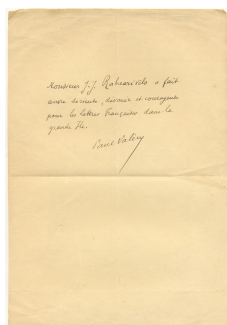 Monsieur J.J. Rabearivelo a fait
œuvre décisive, dévouée et courageuse
pour les lettres françaises dans la
grande Île.
Paul Valéry